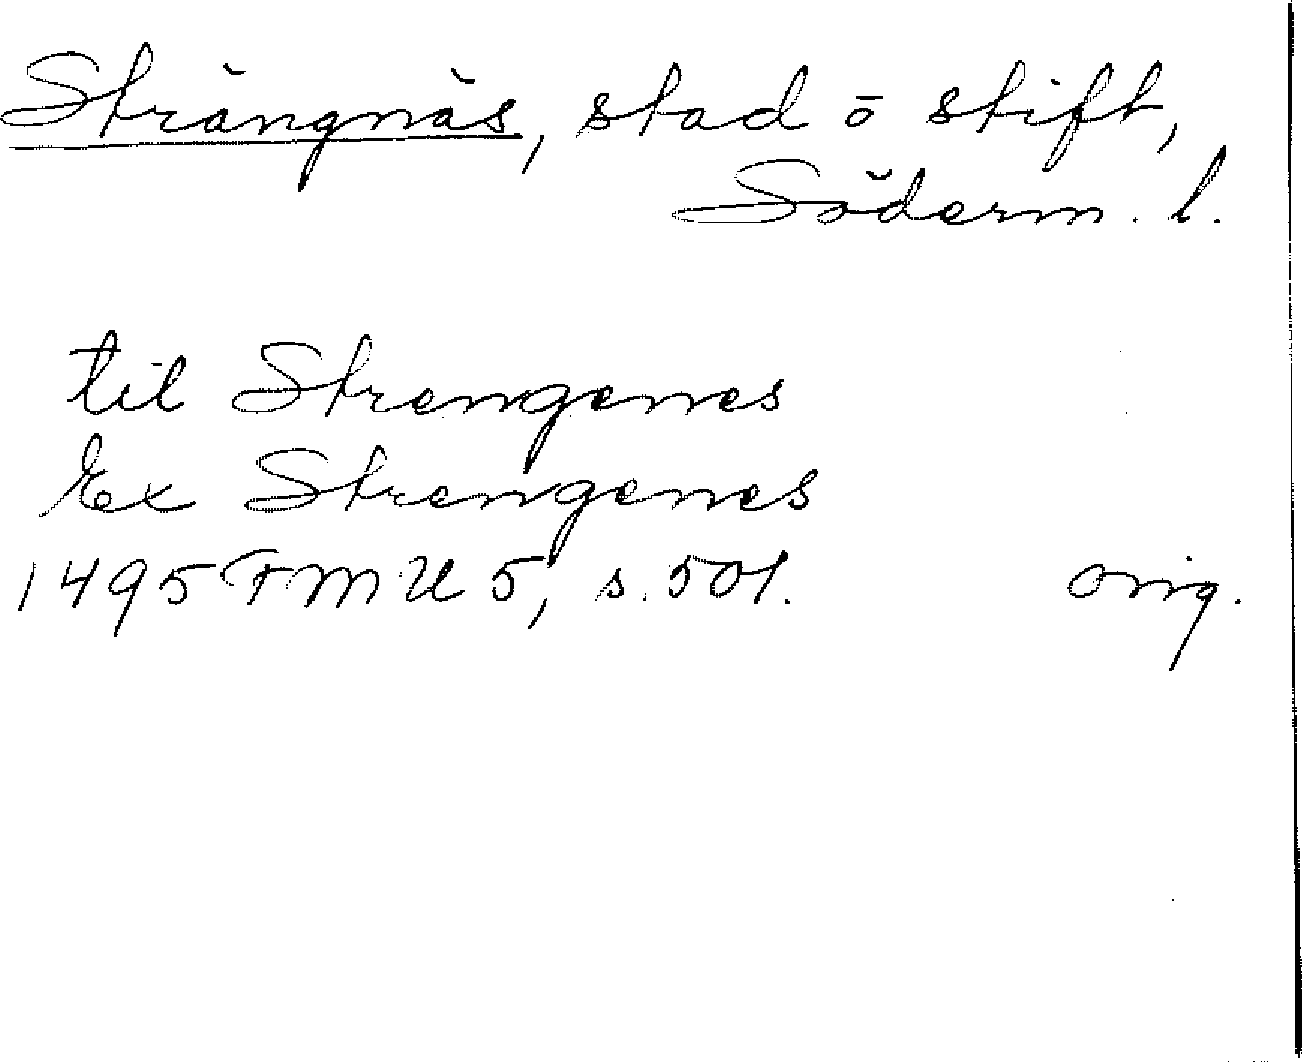 Strängnäs, stad o stift,
Söderm. l.
til Strengenes
Ex Strengenes
1495 FMU 5, s. 501. orig.